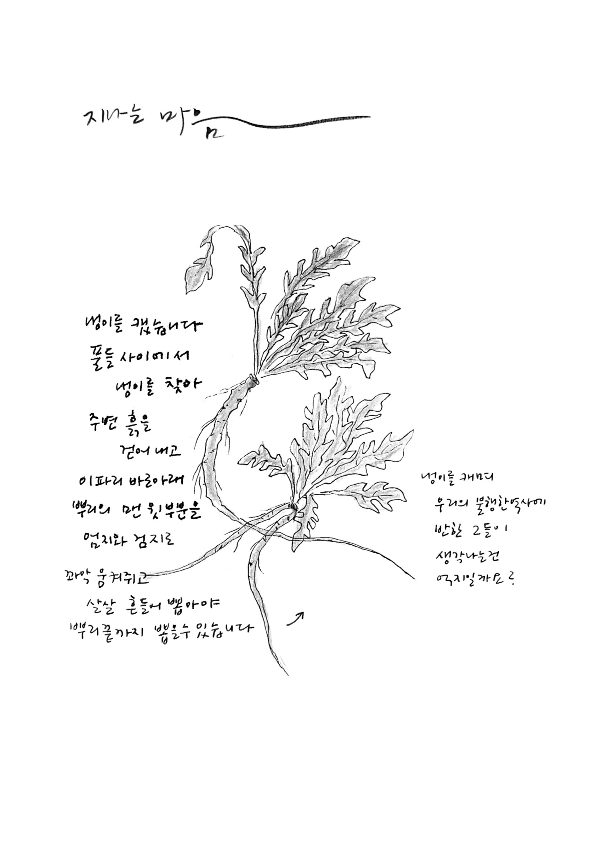 지나는 마음
냉이를 캤습니다
풀들 사이에서
냉이를 찾아
주변 흙을
걷어 내고
이파리 바로아래
뿌리의 맨 윗부분을
엄지와 검지로
꽈악 움켜쥐고
살살 흔들어 뽑아야
뿌리끝까지 뽑을수있습니다
냉이를 캐며
우리의 불행한역사에
반한 그들이
생각나는건
억지일까요?